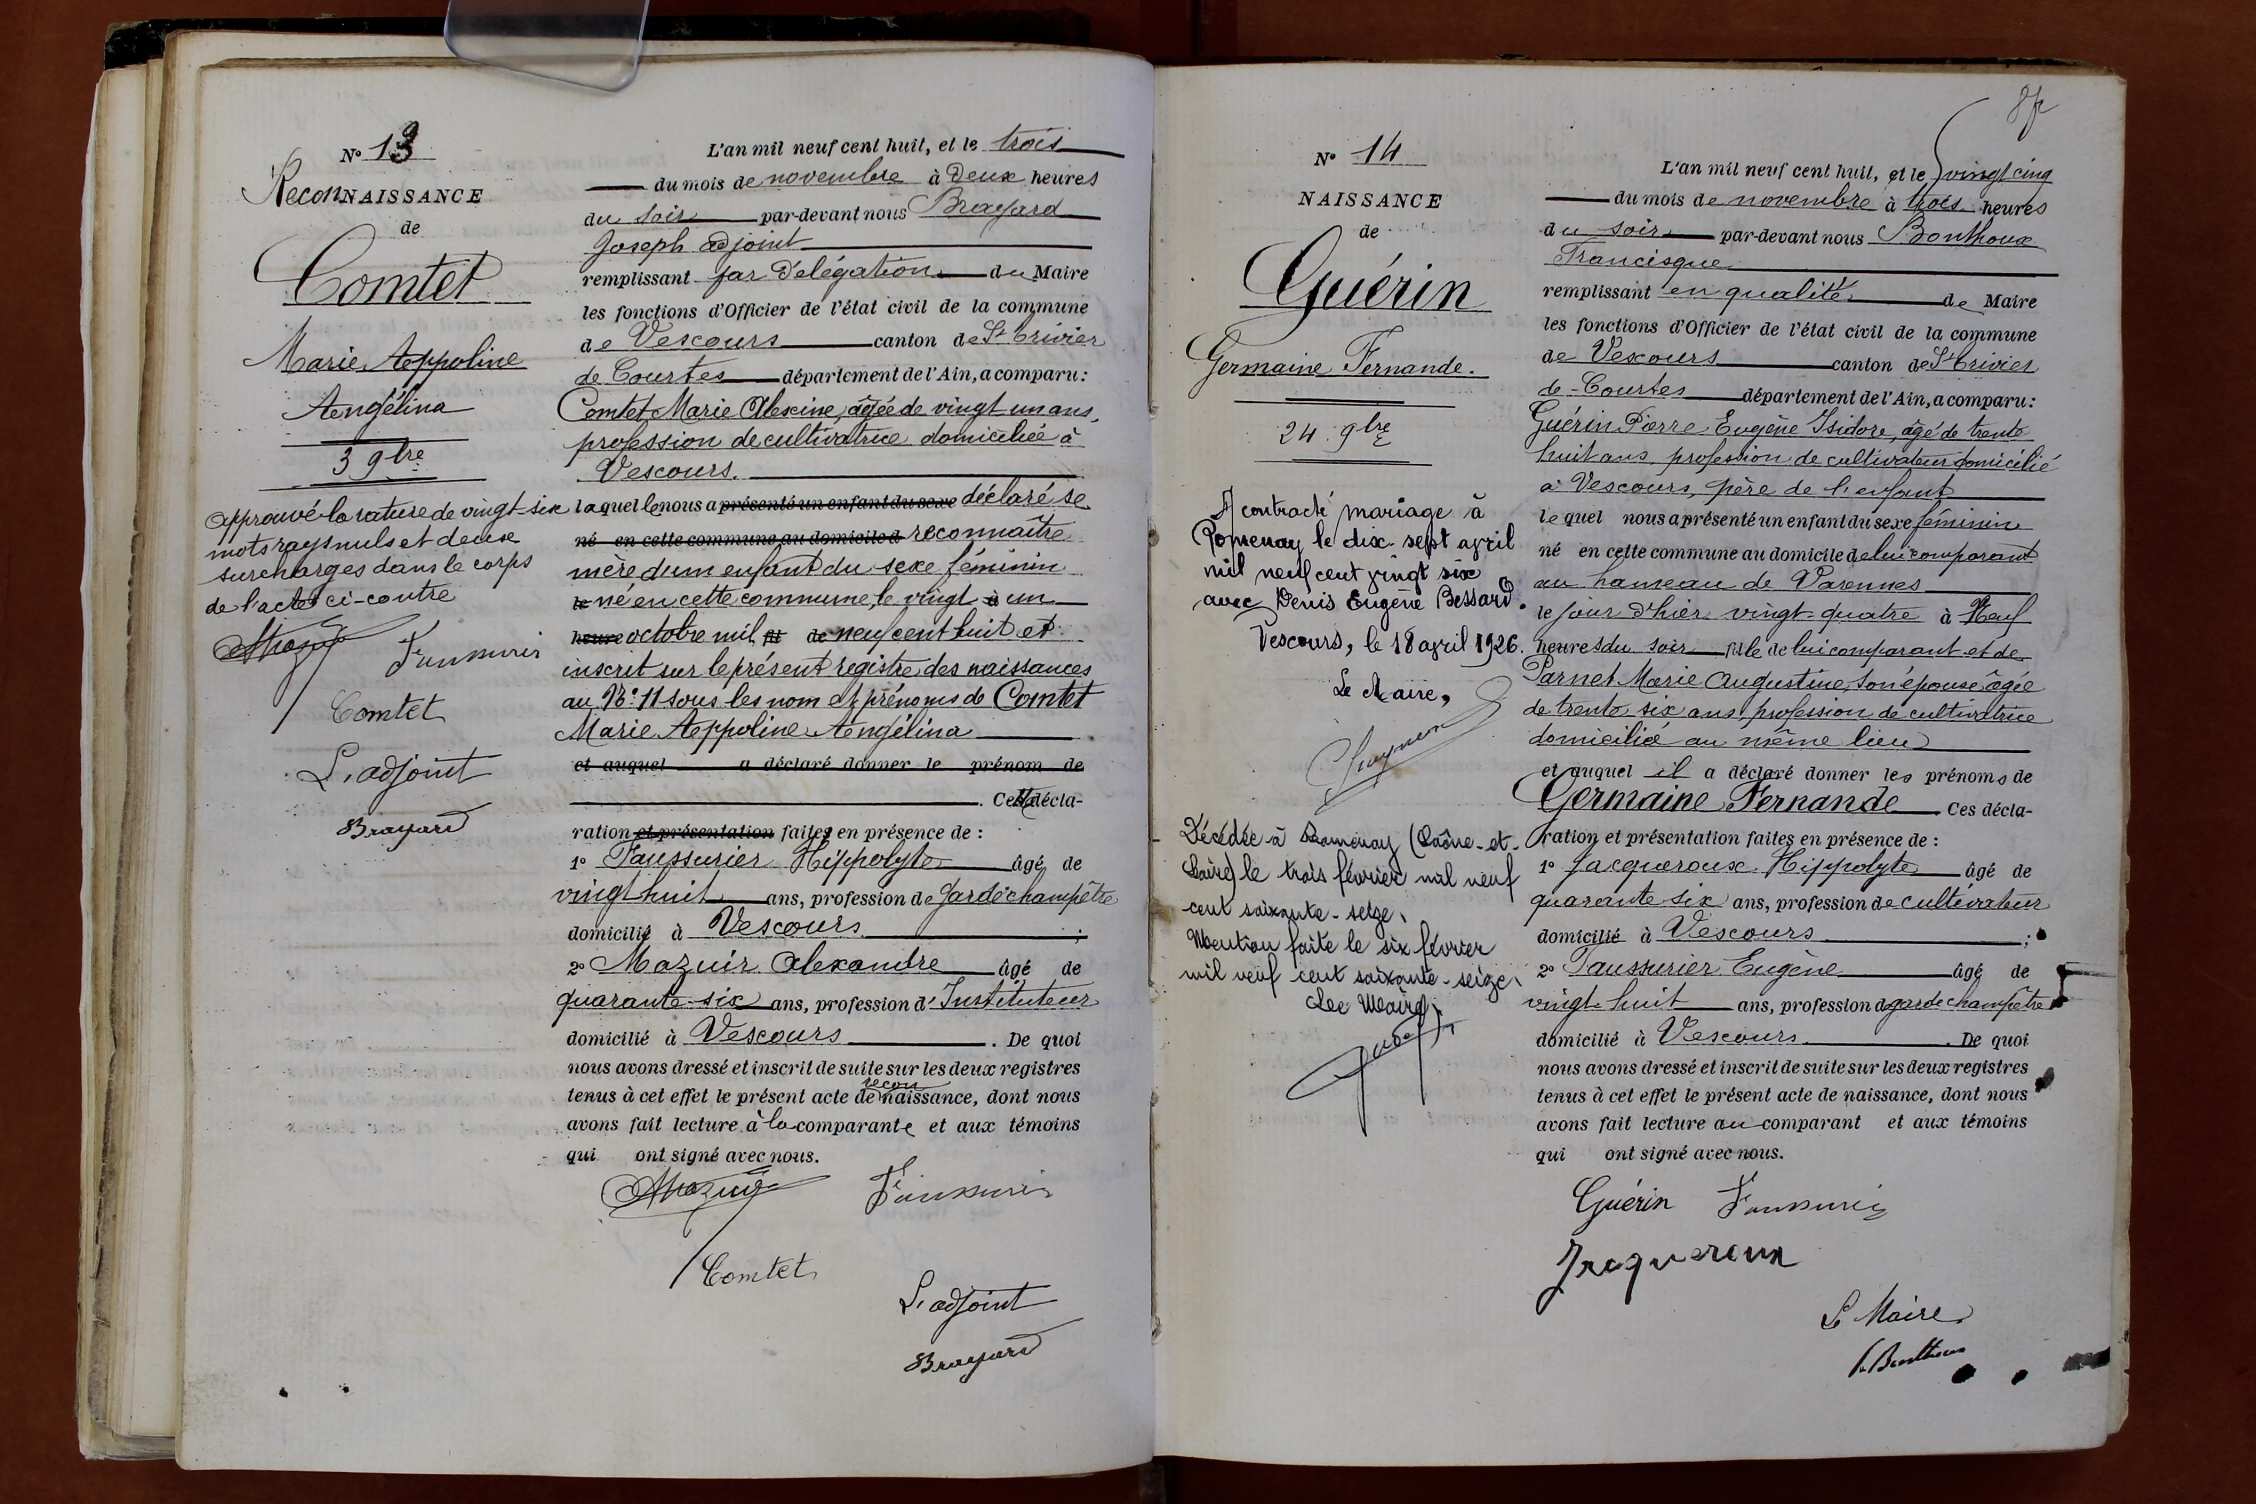 N° 13
ReconNAISSANCE
de
Comtet
Marie Appoline
Angélina
3 9bre
approuvé la rature de vingt-six
mots rayés nuls et deux
surcharges dans le corps
de l'acte ci-contre
Comtet
L'adjoint
Brayard
L'an mil neuf cent huit, et le trois
du mois de novembre à Deux heures
du soir par-devant nous Brayard
Joseph adjoint
remplissant par Délégation du Maire
les fonctions d'Officier de l'état civil de la commune
de Vescours canton de St Trivier
de Courtes département de l'Ain, a comparu :
Comtet Marie Alexine, âgée de vingt un ans,
profession de cultivatrice domiciliée à
Vescours.
laquelle nous a présenté un enfant du sexe déclaré se
né en cette commune au domicile d reconnaître
mère d'un enfant du sexe féminin
le né en cette commune, le vingt à un
heure octobre mil fil de neuf cent huit et
inscrit sur le présent registre des naissances
au N° 11 sous les nom et prénoms de Comtet
Marie Appoline Angélina
et auquel a déclaré donner le prénom de
. Cette décla-
ration et présentation faites en présence de :
1° Faussurier Hippolyte âgé de
vingt huit ans, profession de garde champêtre
domicilié à Vescours ;
2° Mazuir Alexandre âgé de
quarante-six ans, profession d'Instituteur
domicilié à Vescours . De quoi
nous avons dressé et inscrit de suite sur les deux registres
recon
tenus à cet effet le présent acte de naissance, dont nous
avons fait lecture à la comparante et aux témoins
qui ont signé avec nous.
Comtet
L'adjoint
Brayard
N° 14
NAISSANCE
de
Guérin
Germaine Fernande.
24 9bre
A contracté mariage à
Romenay le dix-sept avril
mil neuf cent vingt six
avec Denis Eugène Bessard.
Vescours, le 18 avril 1926.
Le Maire,
Décédée à Romenay (Saône-et-
Loire) le trois février mil neuf
cent soixante-seize.
Mention faite le six février
mil neuf cent soixante-seize.
Le Maire
L'an mil neuf cent huit, et le vingt cinq
du mois de novembre à trois heures
du soir par-devant nous Bonthoux
Francisque
remplissant en qualité de Maire
les fonctions d'Officier de l'état civil de la commune
de Vescours canton de St Trivier
de Courtes département de l'Ain, a comparu :
Guérin Pierre Eugène Isidore, âgé de trente
huit ans, profession de cultivateur domicilié
à Vescours, père de l'enfant
lequel nous a présenté un enfant du sexe féminin
né en cette commune au domicile de lui comparant
au hameau de Varennes
le jour d'hier vingt-quatre à Neuf
heures du soir fille de lui comparant et de
Parnet Marie Augustine, son épouse âgée
de trente six ans, profession de cultivatrice
domiciliée au même lieu
et auquel il a déclaré donner les prénoms de
Germaine Fernande . Ces décla-
ration et présentation faites en présence de :
1° Jacqueroux Hippolyte âgé de
quarante six ans, profession de cultivateur
domicilié à Vescours ;
2° Faussurier Eugène âgé de
vingt-huit ans, profession de garde champêtre
domicilié à Vescours . De quoi
nous avons dressé et inscrit de suite sur les deux registres
tenus à cet effet le présent acte de naissance, dont nous
avons fait lecture au comparant et aux témoins
qui ont signé avec nous.
Guérin
Jacqueroux
Le Maire
F. Bonthoux